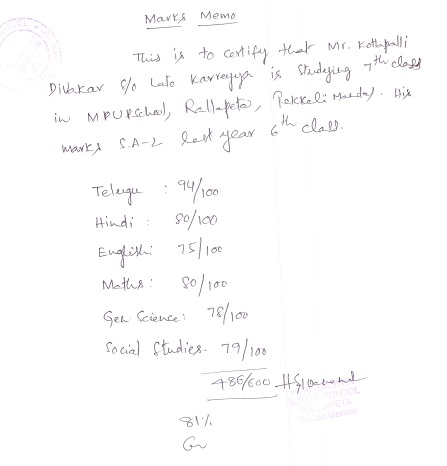 Marks Memo
This is to certify that Mr. Kottapalli
Divakar S/o Late Karreyya is studying 7th class
in MPUPSchool, Rallapeta, Tekkali Mandal. His
marks S.A-2 last year 6th class.
Telugu : 94/100
Hindi : 80/100
English: 75/100
Maths: 80/100
Gen Science: 78/100
Social Studies. 79/100
486/600
81%